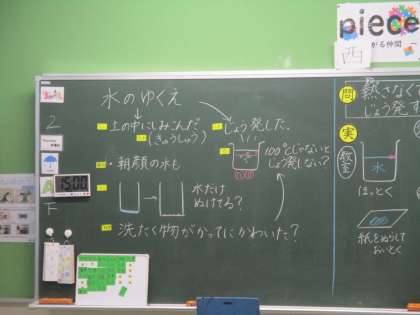 piece
がる仲間 ～
西
水のゆくえ
土の中にしみこんだ
(きゅうしゅう)
じょう発した.
・朝顔の水も
100℃じゃないと
じょう発しない?
水だけ
ぬけてる?
洗たく物がかってにかわいた?
問
熱さなくて
じょう発
実
教室
水
ほっとく
紙をぬらして
おいとく
2
15:00
下